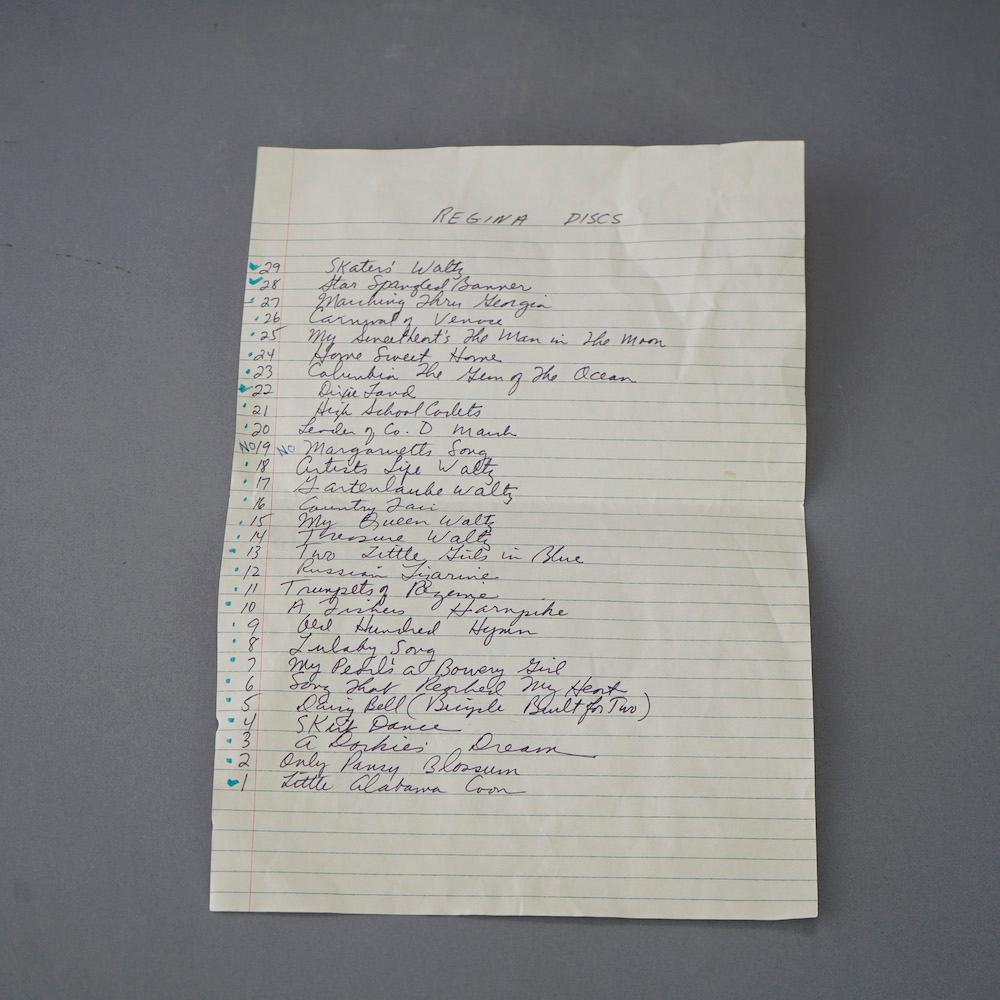 REGINA DISCS
29 Skaters' Waltz
28 Star Spangled Banner
27 Marching Thru Georgia
26 Carnival of Venice
25 My Sweetheart's The Man in The Moon
24 Home Sweet Home
23 Columbia The Gem of The Ocean
22 Dixie Land
21 High School Cadets
20 Leader of Co. D March
NO 19 NO Margaruetts Song
18 Artists Life Waltz
17 Gartenlaube Waltz
16 Country Fair
15 My Queen Waltz
14 Treasure Waltz
13 Two Little Girls in Blue
12 Russian
11 Trumpets of
10 A Fishers Harnpike
9 Old Hundred Hymn
8 Lulaby Song
7 My Pearl's a Bowery Girl
6 Song That Reached My Heart
5 Daisy Bell (Bicycle Built for Two)
4 Skirt Dance
3 A Darkies' Dream
2 Only Pansy Blossum
1 Little Alabama Coon